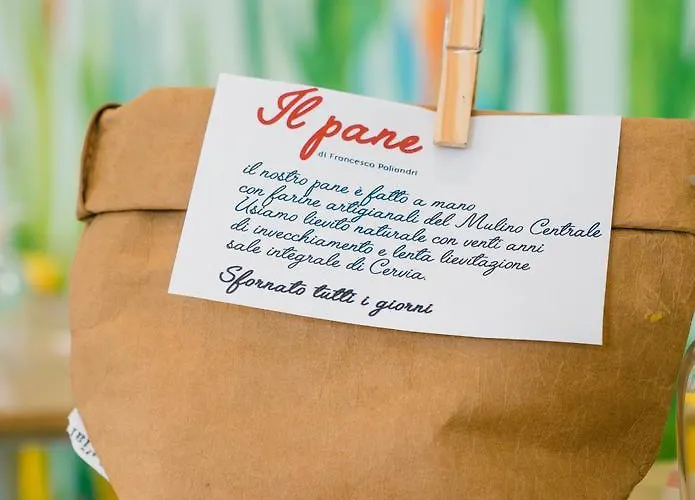 Il pane
di Francesco Poliandri
il nostro pane è fatto a mano
con farine artigianali del Mulino Centrale
Usiamo lievito naturale con venti anni
di invecchiamento e lenta lievitazione
sale integrale di Cervia.
Sfornato tutti i giorni